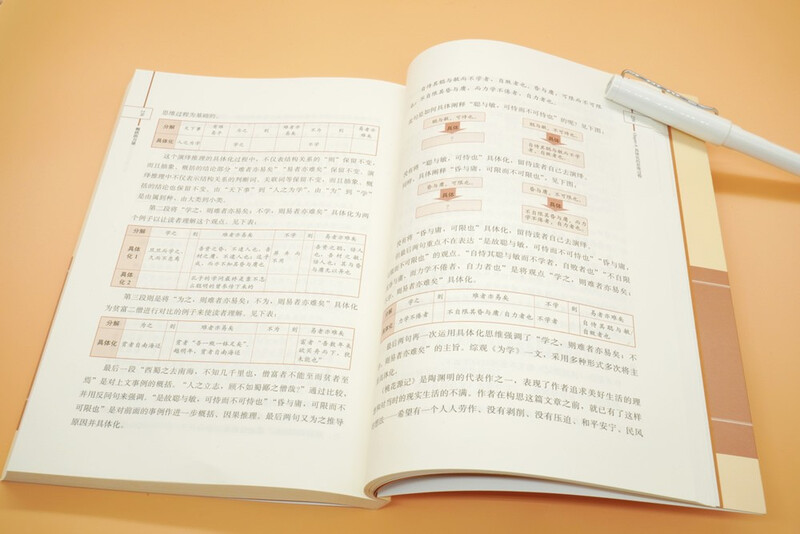 思维过程为基础的。
分解 天下事
具体化 人之为学
这个演绎推理的具体化过程中，不仅表结构关系的“则”保留不变，
而且抽象、概括的结论部分“难者亦易矣”“易者亦难矣”保留不变。演
绎推理中不仅表示结构关系的判断词、关联词等保留不变，而且抽象、概
括的结论也保留不变。由“天下事”到“人之为学”，由“为”到“学”
是由属到种，由大类到小类。
第二段将“学之，则难者亦易矣；不学，则易者亦难矣”具体化为两
个例子以让读者理解这个观点。见下表：
分解 学之 则 难者亦易矣 不学 则 易者亦难矣
具体化1
具体化2
第三段则是将“为之，则难者亦易矣；不为，则易者亦难矣”具体化
为贫富二僧进行对比的例子来使读者理解。见下表：
分解 为之 则 难者亦易矣 不为 则 易者亦难矣
具体化 贫者自南海还
最后一段“西蜀之去南海，不知几千里也，僧富者不能至而贫者至
焉”是对上文事例的概括。“人之立志，顾不如蜀鄙之僧哉？”通过比较，
并用反问句来强调。“是故聪与敏，可恃而不可恃也”“昏与庸，可限而不
可限也”是对前面的事例作进一步概括、因果推理。最后两句又为之推导
原因并具体化。
自恃其聪与敏而不学者，自败者也。昏与庸，可限而不可限
也；不自限其昏与庸，而力学不倦者，自力者也。
如何具体阐释“聪与敏，可恃而不可恃也”的呢？见下图。
聪与敏，可恃也。
具体
？
聪与敏，不可恃也。
具体
自恃其聪与敏而不学者，自败者也。
“聪与敏，可恃也”具体化，留待读者自己去演绎。
具体阐释“昏与庸，可限而不可限也”，见下图。
昏与庸，可限也。
具体
？
昏与庸，不可限也。
具体
不自限其昏与庸，而力学不倦者，自力者也。
“昏与庸，可限也”具体化，留待读者自己去演绎。
最后两句重点不在表达“是故聪与敏，可恃而不可恃也”“昏与庸，
可限而不可限也”的观点。“自恃其聪与敏而不学者，自败者也”“不自限
其昏与庸，而力学不倦者，自力者也”是将观点“学之，则难者亦易矣；
不学，则易者亦难矣”具体化。
分解 学之 则 难者亦易矣 不学 则 易者亦难矣
具体化 力学不倦者 不自限其昏与庸；自力者也 不学者 自恃其聪与敏，自败者也
最后两句再一次运用具体化思维强调了“学之，则难者亦易矣；不
学，则易者亦难矣”的主旨。综观《为学》一文，采用多种形式多次将主
旨具体化。
《桃花源记》是陶渊明的代表作之一，表现了作者追求美好生活的理
想和对当时的现实生活的不满。作者在构思这篇文章之前，就已有了这样
希望有一个人人劳作、没有剥削、没有压迫、和平安宁、民风